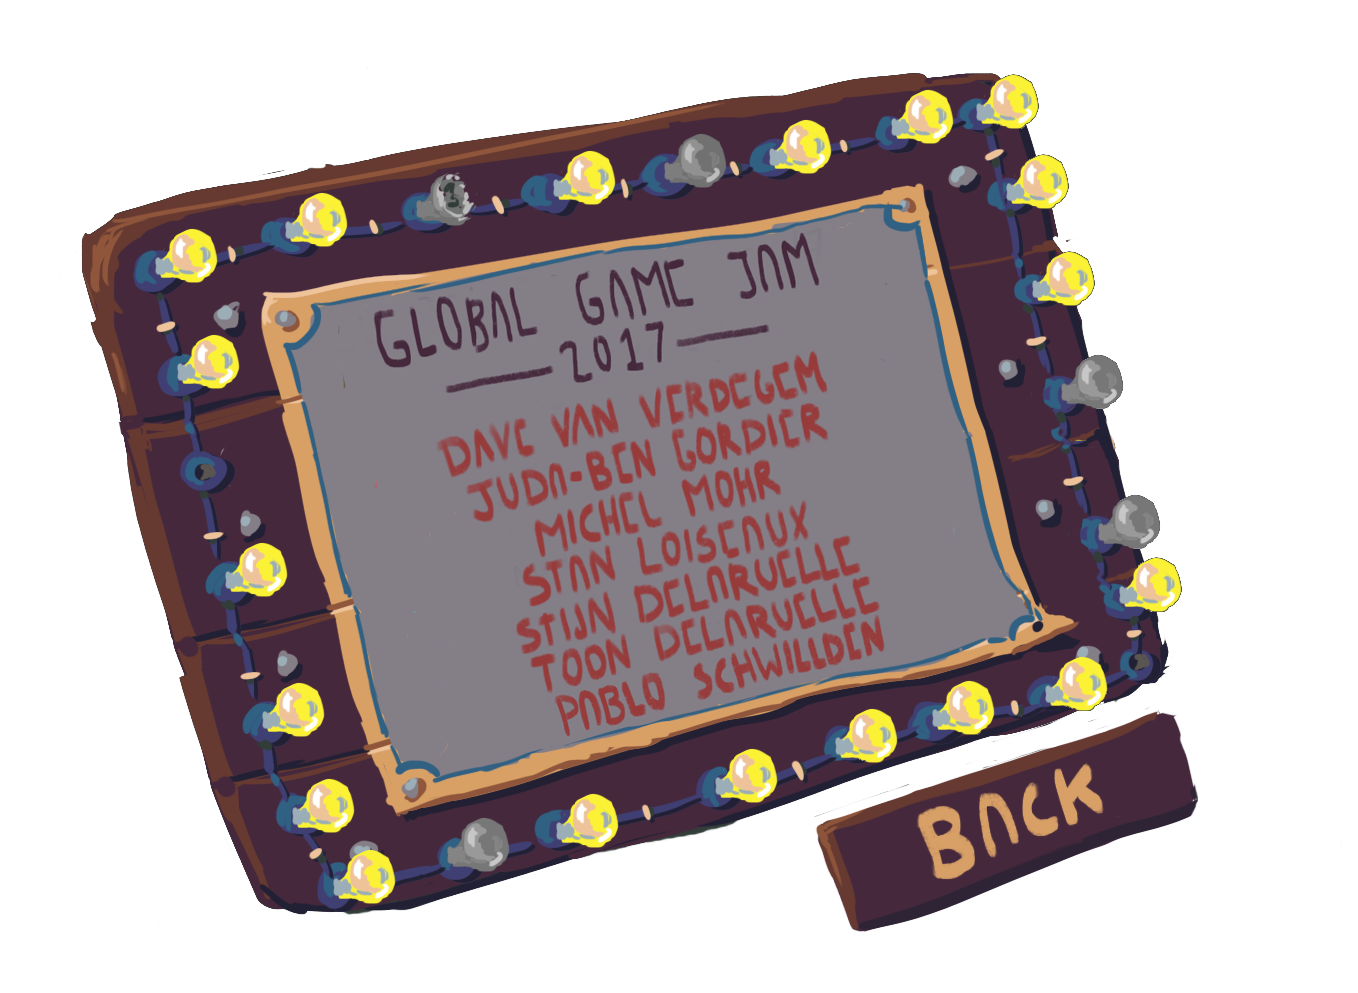 GLOBAL GAME JAM
2017
DAVE VAN VERDEGEM
JUDA-BEN GORDIER
MICHEL MOHR
STAN LOISEAUX
STIJN DELARUELLE
TOON DELARUELLE
PABLO SCHWILLDEN
BACK